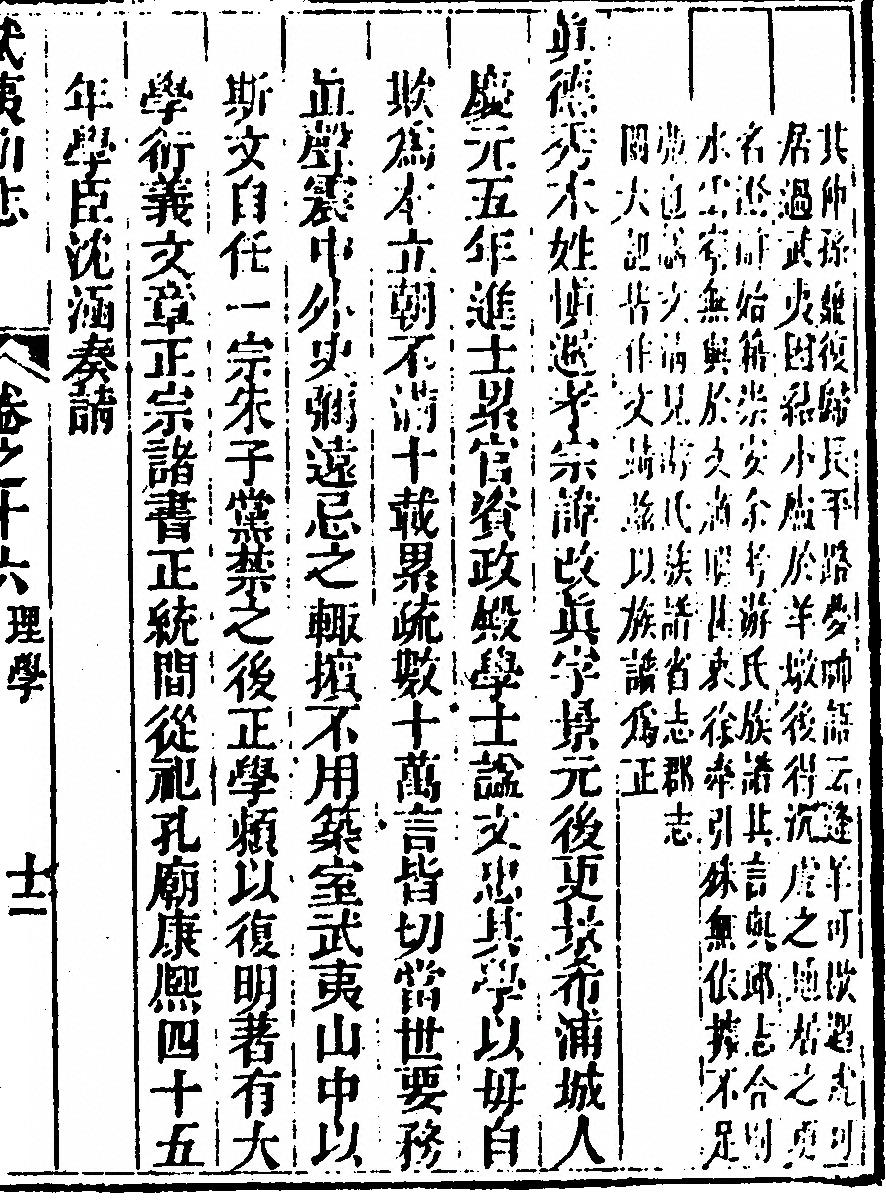 其仲孫繼復歸長平路夢師語云逢羊可歇遇虎可
居過武夷因結小廬於羊墩後得沉虎之地居之貞
名澄所始籍崇安余考游氏族譜其言與郡志合則
水雲寮無與於文肅明甚衷徐牽引殊無依據不足
也文肅見游氏族譜省志郡志
大記皆作文以族譜為正
眞德秀本姓慎避孝宗諱改眞字景元後更景希浦城人
慶元五年進士累官資政殿學士諡文忠其學以毋自
欺爲本立朝不滿十載累疏數十萬言皆切當世要務
直聲震中外史彌遠忌之輙擯不用築室武夷山中以
斯文自任一宗朱子黨禁之後正學頼以復明著有大
學衍義文章正宗諸書正統間從祀孔廟康熙四十五
年學臣沈涵奏請
武夷山志 卷之十六 理學 十二